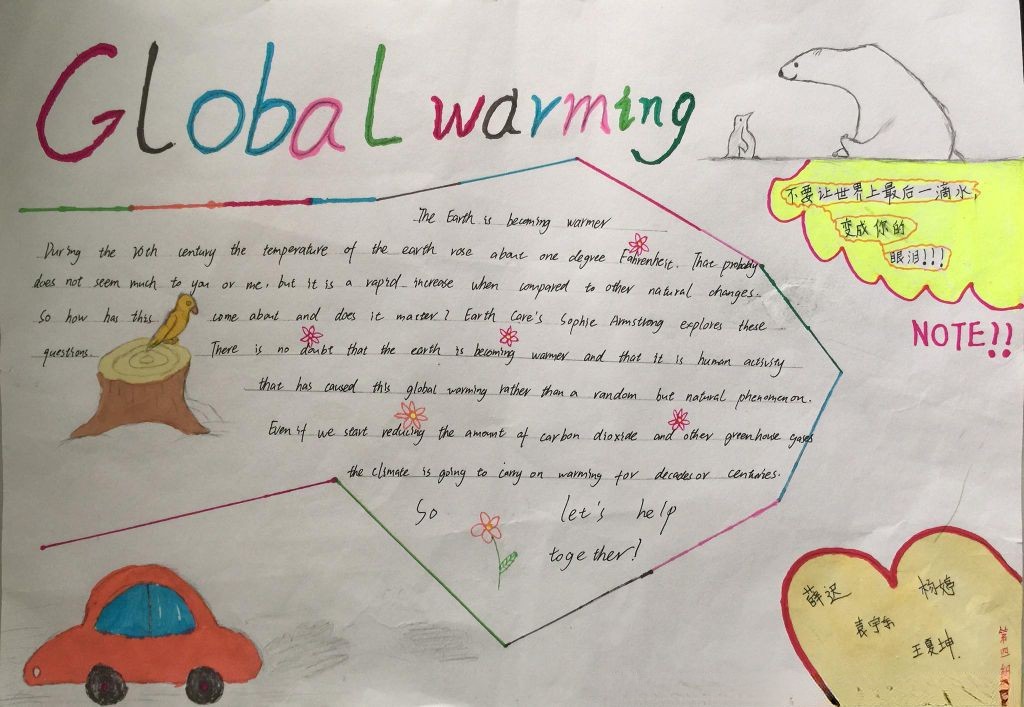 Global warming
The Earth is becoming warmer
During the 20th century the temperature of the earth rose about one degree Fahrenheit. That probably
does not seem much to you or me, but it is a rapid increase when compared to other natural changes.
So how has this come about and does it matter? Earth Care's Sophie Armstrong explores these
questions. There is no doubt that the earth is becoming warmer and that it is human activity
that has caused this global warming rather than a random but natural phenomenon.
Even if we start reducing the amount of carbon dioxide and other greenhouse gases
the climate is going to carry on warming for decades or centuries.
So let's help
together!
不要让世界上最后一滴水,
变成你的
眼泪!!!
NOTE!!
薛迟 杨婷
袁宇东
王夏坤.
第四组